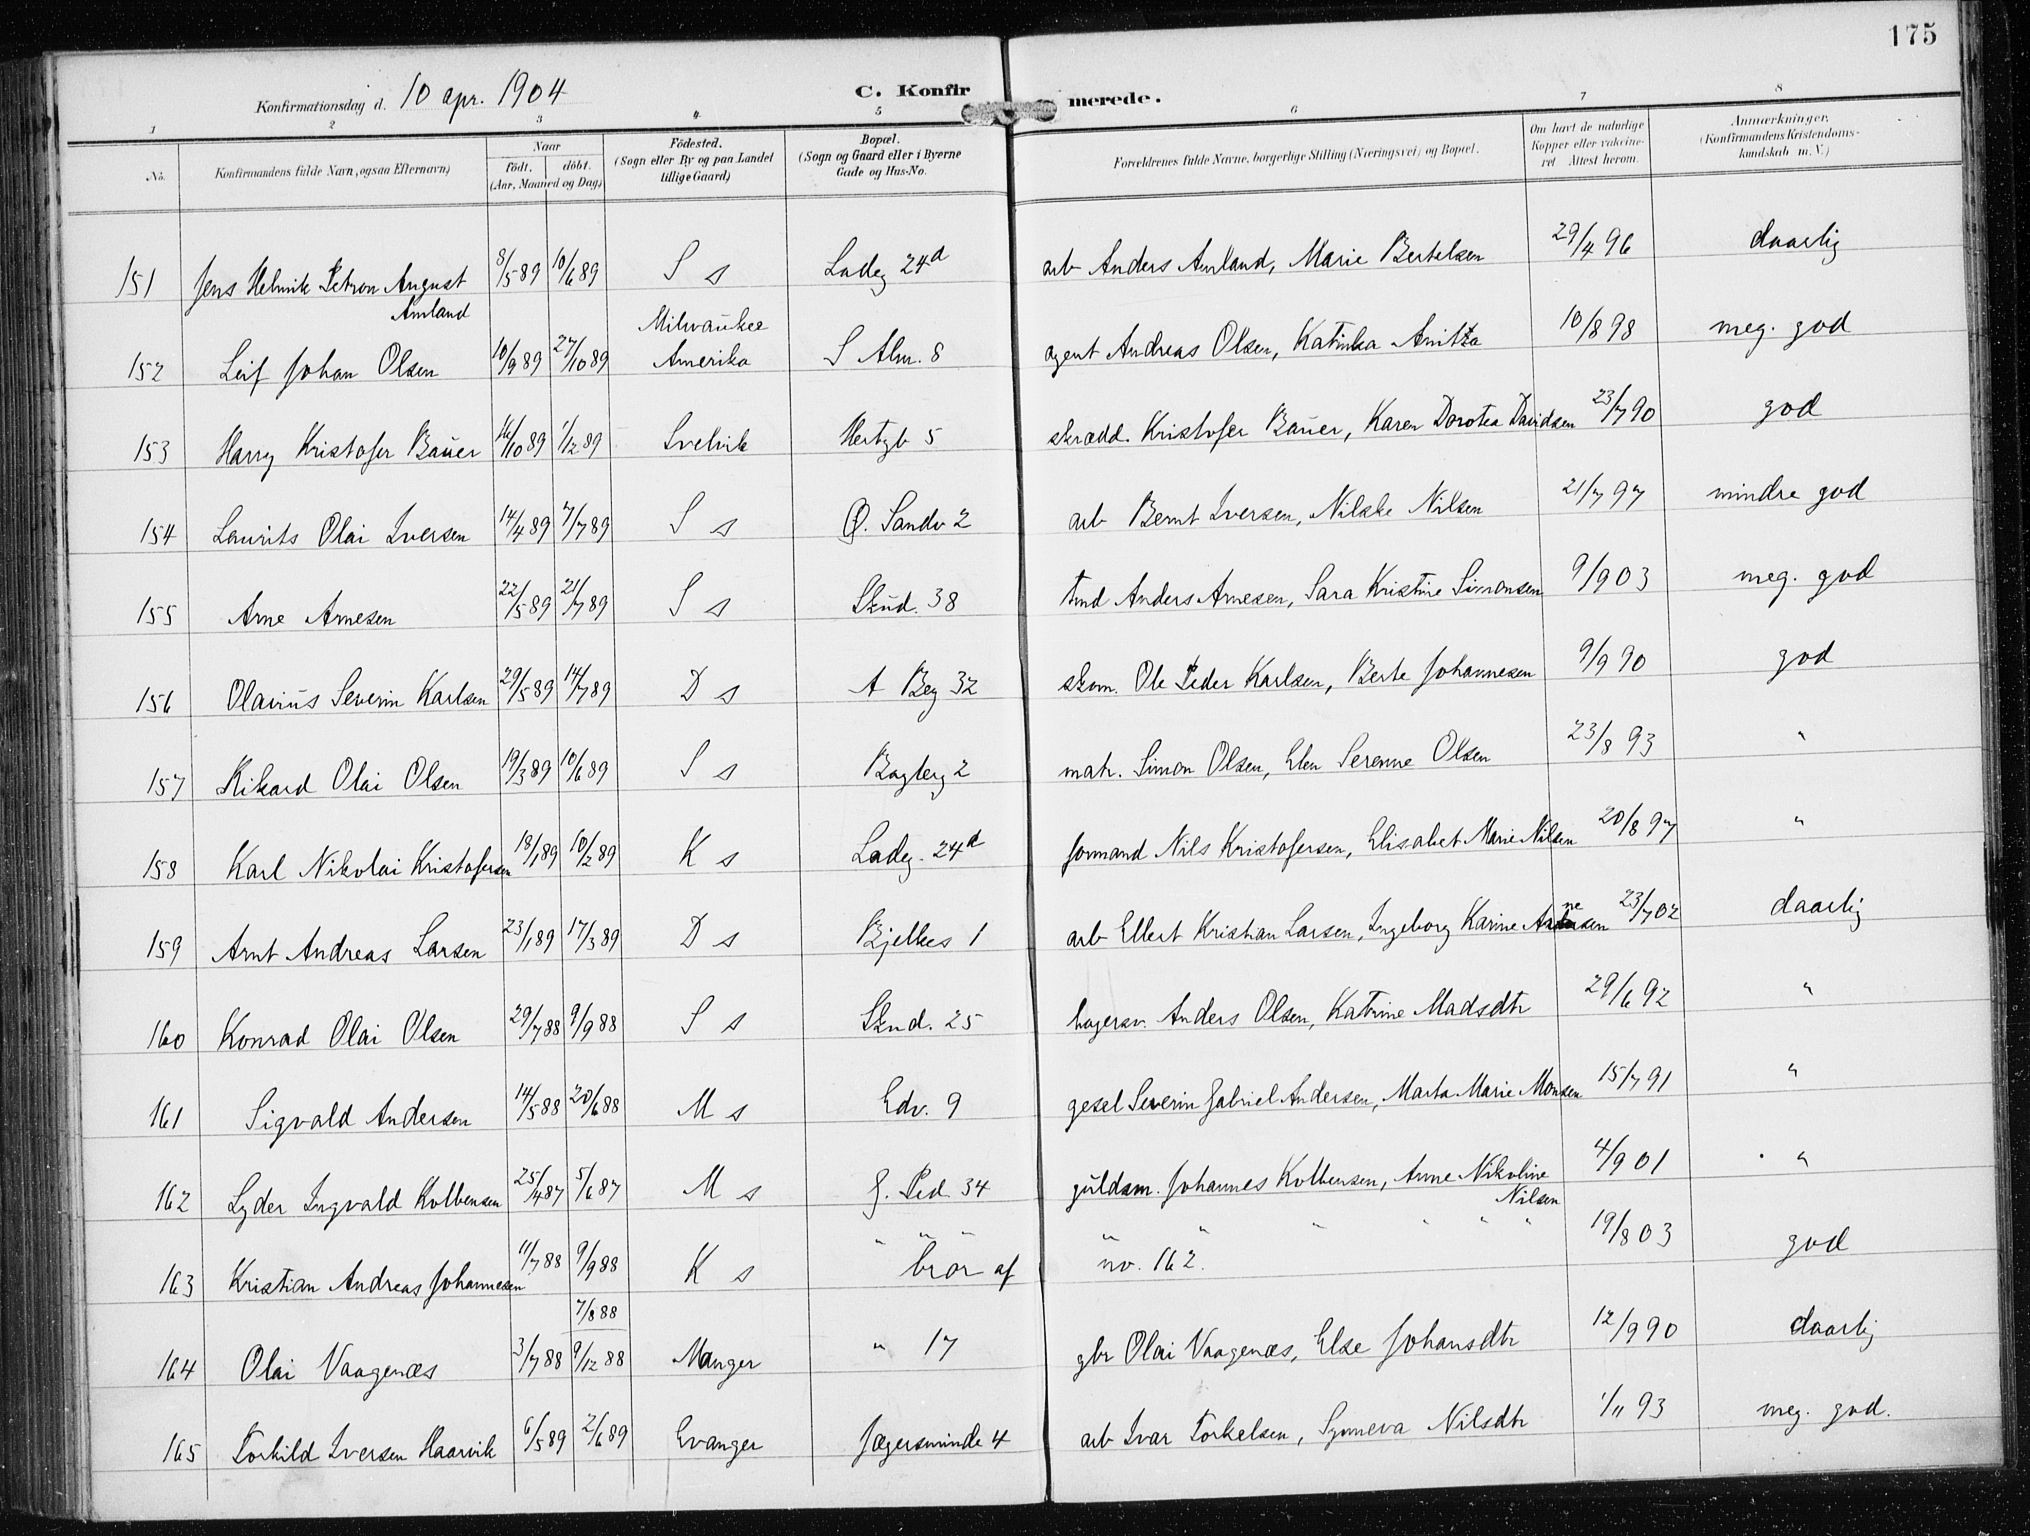 175
Konfirmationsdag d. 10 apr. 1904
C. Konfirmerede.
1 2 3 4 5 6 7 8
No.
Konfirmandens fulde Navn, ogsaa Efternavn)
Naar
födt. döbt.
(Aar, Maaned og Dag)
Födested.
(Sogn eller By og paa Landet
tillige Gaard)
Bopæl.
(Sogn og Gaard eller i Byerne
Gade og Hus-No.
Forældrenes fulde Navne, borgerlige Stilling (Næringsvei) og Bopæl.
Om havt de naturlige
Kopper eller vakcineret
Attest herom.
Anmærkninger.
(Konfirmandens Kristendomskundskab
m. V.)
151 Jens Helmik Petron August 8/5 89 10/6 89 S s Ladeg 24d arb Anders Amland, Marie Bertelsen 29/4 96 daarlig
Amland
Milwaukee
152 Leif Johan Olsen 10/9 89 27/10 89 Amerika S Alm. 8 agent Andreas Olsen, Katinka 10/8 98 meg. god
153 Harry Kristofer Bauer 16/10 89 1/12 89 Svelvik Hertzb 5 skrædd. Kristofer Bauer, Karen Dorotea Davidsen 23/7 90 god
154 Laurits Olai Iversen 14/4 89 7/7 89 S s Ø. Sandv 2 arb Bernt Iversen, Nilske Nilsen 21/7 97 mindre god
155 Arne Arnesen 22/5 89 21/7 89 S s Skud. 38 Anders Arnesen, Sara Kristine Simonsen 9/9 03 meg. god
156 Olairius Severin Karlsen 29/5 89 14/7 89 D s A Beg 32 skom. Ole Peder Karlsen, Berte Johannesen 9/9 90 god
157 Rikard Olai Olsen 19/3 89 10/6 89 S s 2 matr. Simon Olsen, Elen Serenne Olsen 23/8 93 "
158 Karl Nikolai Kristofersen 18/1 89 10/2 89 K s Ladeg. 24d formand Nils Kristofersen, Elisabet Marie Nilsen 20/8 97 "
159 Arnt Andreas Larsen 23/1 89 17/3 89 D s Bjelkes 1 arb Ellert Kristian Larsen, Ingeborg Karine 23/7 02 daarlig
160 Konrad Olai Olsen 29/7 88 9/9 88 S s Skud. 25 Anders Olsen, Katrine Madsdtr 29/6 92 "
161 Sigvald Andersen 14/5 88 20/6 88 M s Edv. 9 gesel Severin Gabriel Andersen, Marta Marie Monsen 15/7 91 "
162 Lyder Ingvald Kolbensen 25/4 87 5/6 87 M s J. Ped. 34 guldsm. Johannes Kolbensen, Anne Nikoline 4/9 01 "
Nilsen
" " " " " " " " "
163 Kristian Andreas Johannesen 11/7 88 9/9 88 K s bror af no. 162. 19/8 03 god
7/8 88
164 Olai Vaagenæs 3/7 88 9/12 88 Manger " 17 gbr Olai Vaagenæs, Else Johansdtr 12/9 90 daarlig
165 Torkild Iversen Haarvik 6/5 89 2/6 89 Evanger Jægersminde 4 arb Ivar Torkelsen, Synneva Nilsdtr 1/11 93 meg. god.